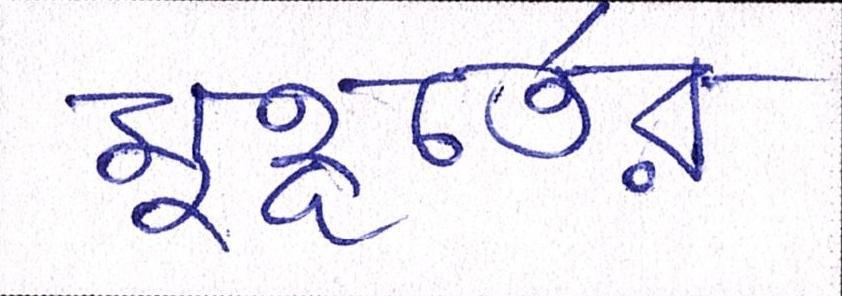 মুহূর্তের